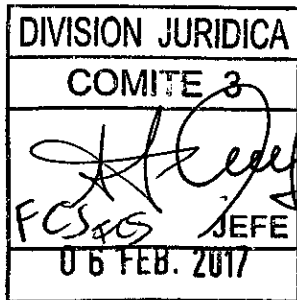 DIVISION JURIDICA
COMITE 3
FCS FCS JEFE
06 FEB. 2017